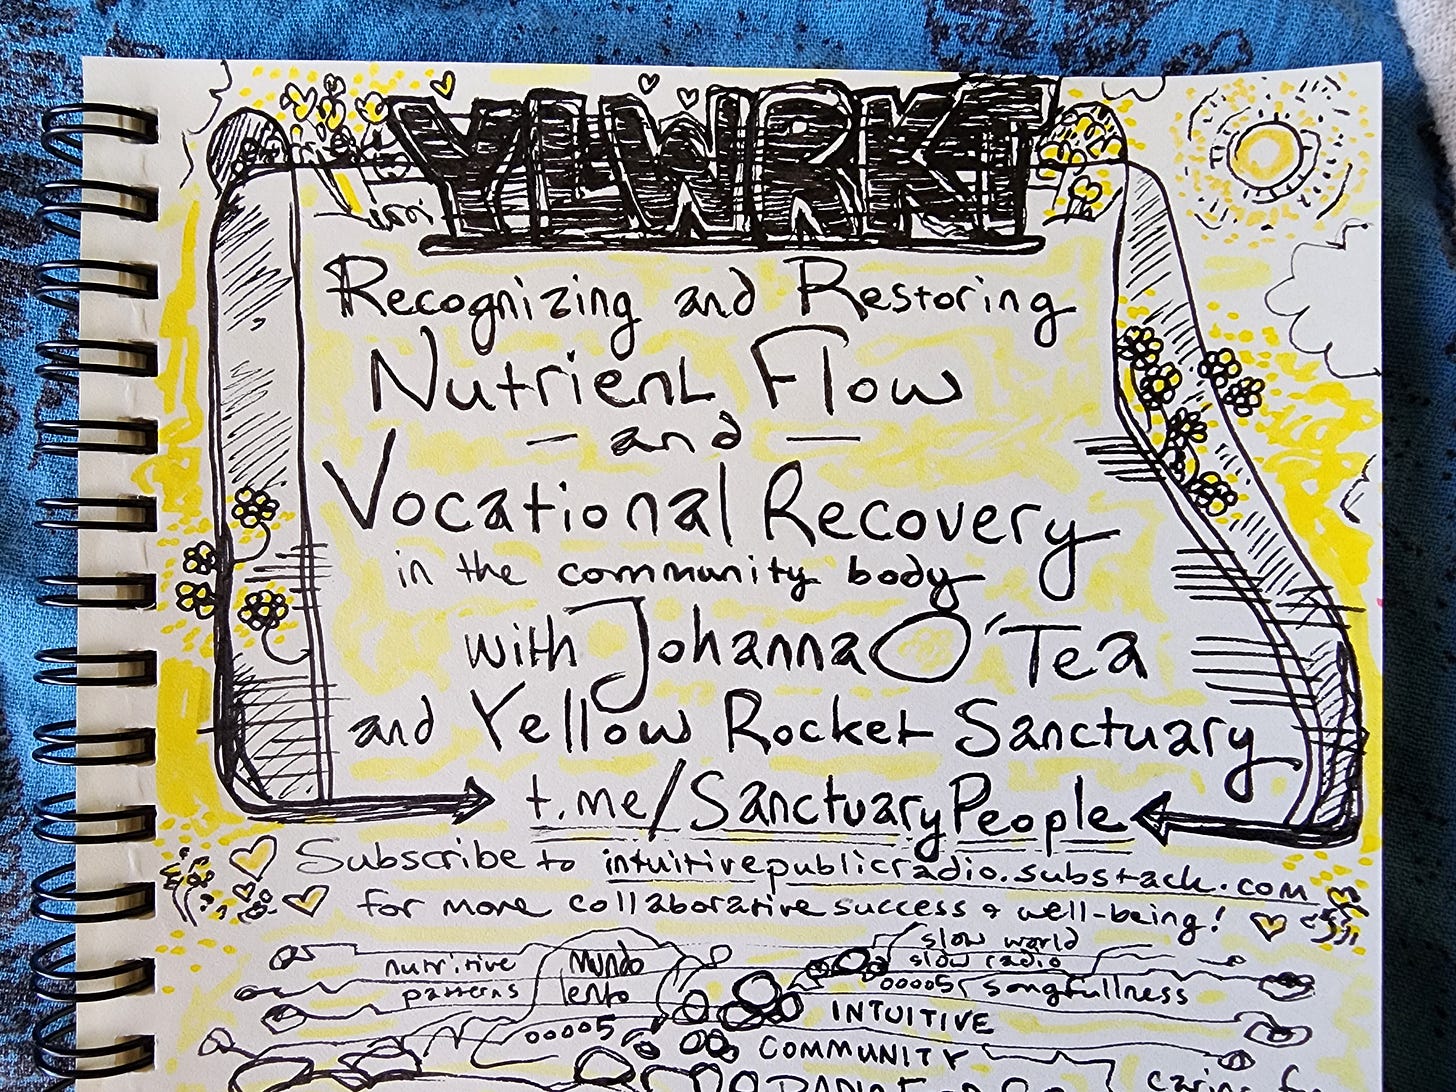 YLWRKT
Recognizing and Restoring
Nutrient Flow
- and -
Vocational Recovery
in the community body
with Johanna O'Tea
and Yellow Rocket Sanctuary
t.me/SanctuaryPeople
Subscribe to intuitivepublicradio.substack.com
for more collaborative success & well-being!
nutritive
patterns
mundo
lento
slow world
slow radio
songfullness
INTUITIVE
COMMUNITY